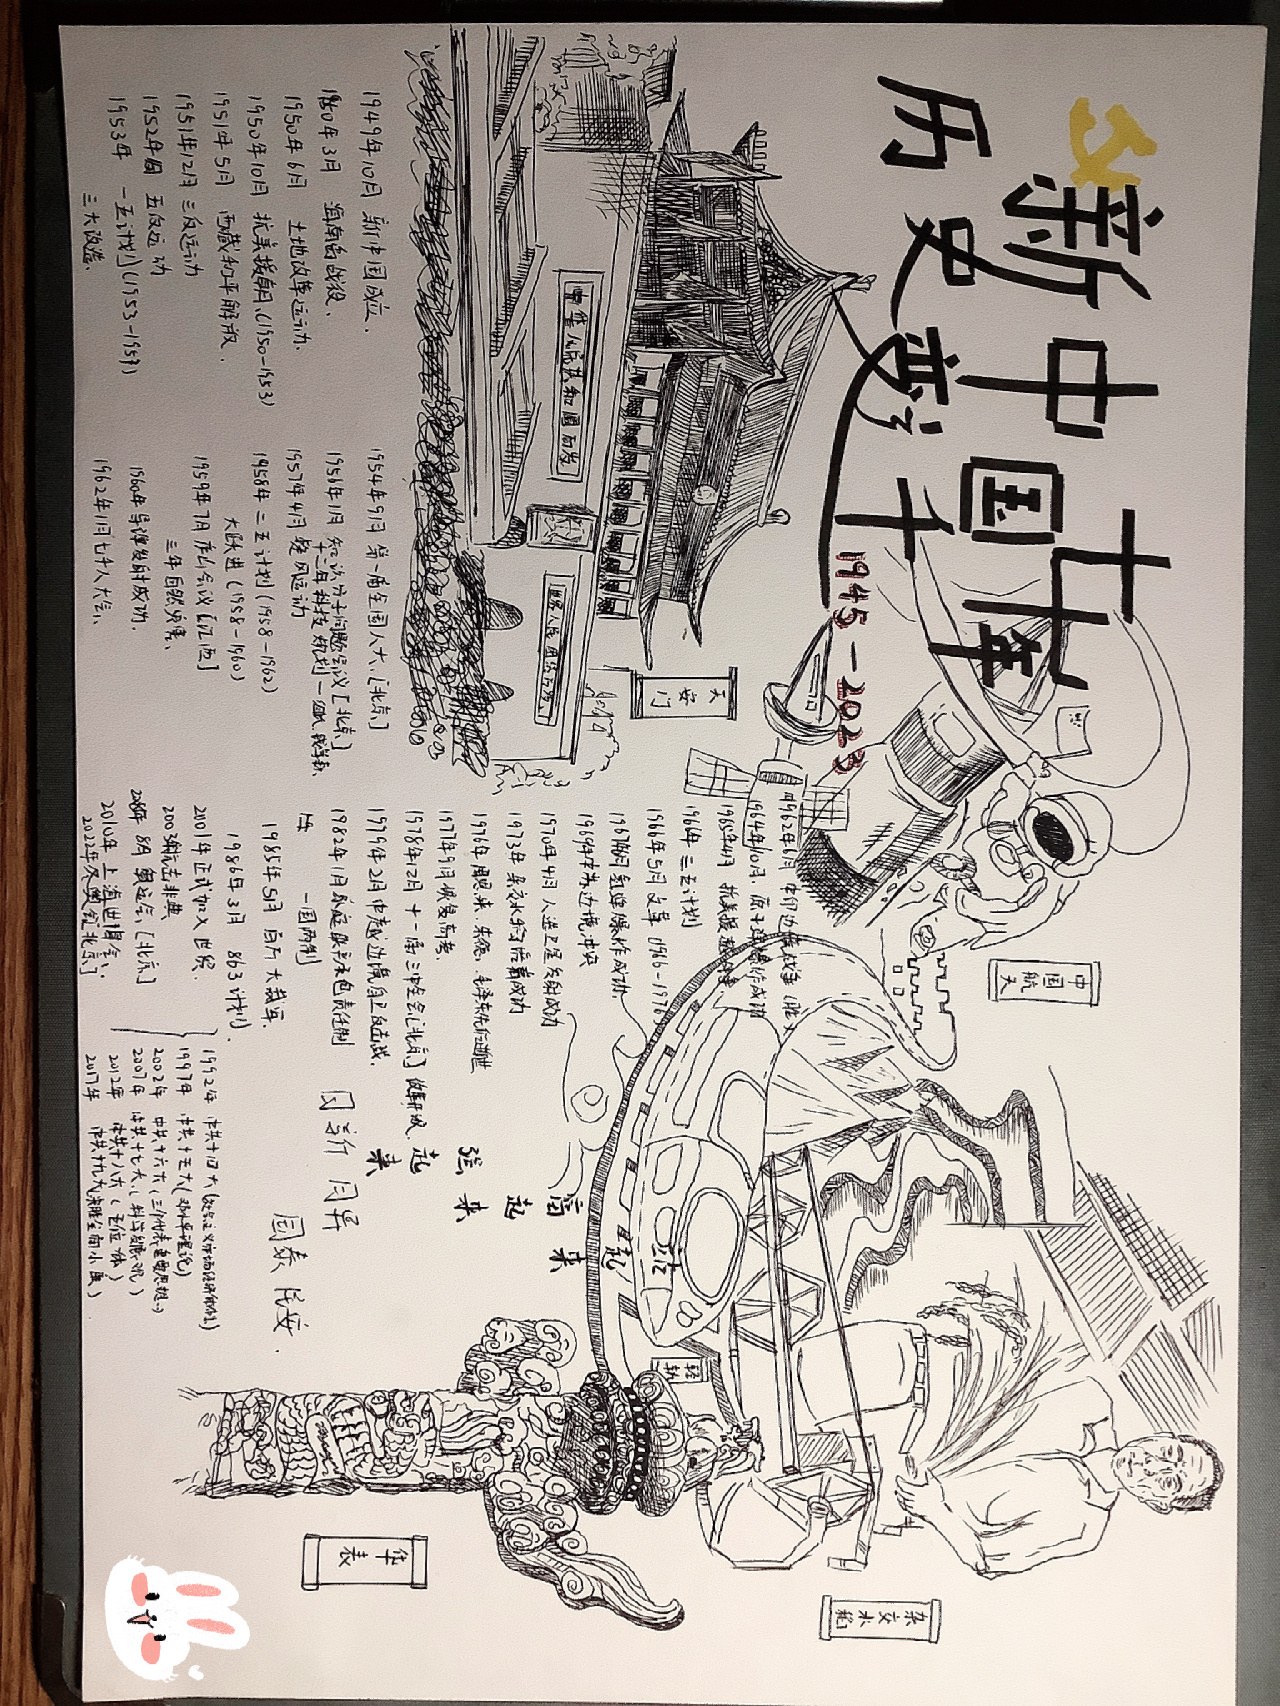 新中国七十年
历史变迁
1945-2023
天安门
中国航天
杂交水稻
华表
中华人民共和国万岁
世界人民团结万岁
1949年10月 新中国成立、
1950年3月 海南岛战役、
1950年6月 土地改革运动、
1950年10月 抗美援朝、(1950-1953)
1951年5月 西藏和平解放、
1951年12月 三反运动
1952年 五反运动
1953年 一五计划(1953-1957)
三大改造、
1954年9月 第一届全国人大、[北京]
1956年1月 知识分子问题会议[北京]
1957年4月 整风运动
1958年 二五计划(1958-1962)
大跃进(1958-1960)
1959年7月 庐山会议[江西]
三年自然灾害、
1960年导弹发射成功、
1962年1月七千人大会、
1962年6月 中印边境战争
1964年10月、原子弹爆炸成功
1965年4月 抗美援越
1966年 三五计划
1966年5月 文革(1966-1976)
1967年 氢弹爆炸成功、
1969年中苏边境冲突
1970年4月 人造卫星发射成功
1973年 杂交水稻培育成功
1976年 周恩来、朱德、毛泽东先后逝世
1977年9月 恢复高考、
1978年12月 十一届三中全会[北京]
1979年2月 中越边境自卫反击战、
1982年1月 家庭联产承包责任制
年 一国两制
1985年5月 百万大裁军、
1986年3月 863计划、
2001年正式加入世贸、
2003年抗击非典
2008年8月 奥运会[北京]
2010年 上海世博会、
2022年冬奥会[北京]
1992年 中共十四大
1997年 中共十五大(邓小平理论)
2002年 中共十六大(三个代表重要思想)
2007年 中共十七大(科学发展观)
2012年 中共十八大(五位一体)
2017年 中共十九大
站起来
富起来
强起来
日新月异
国泰民安